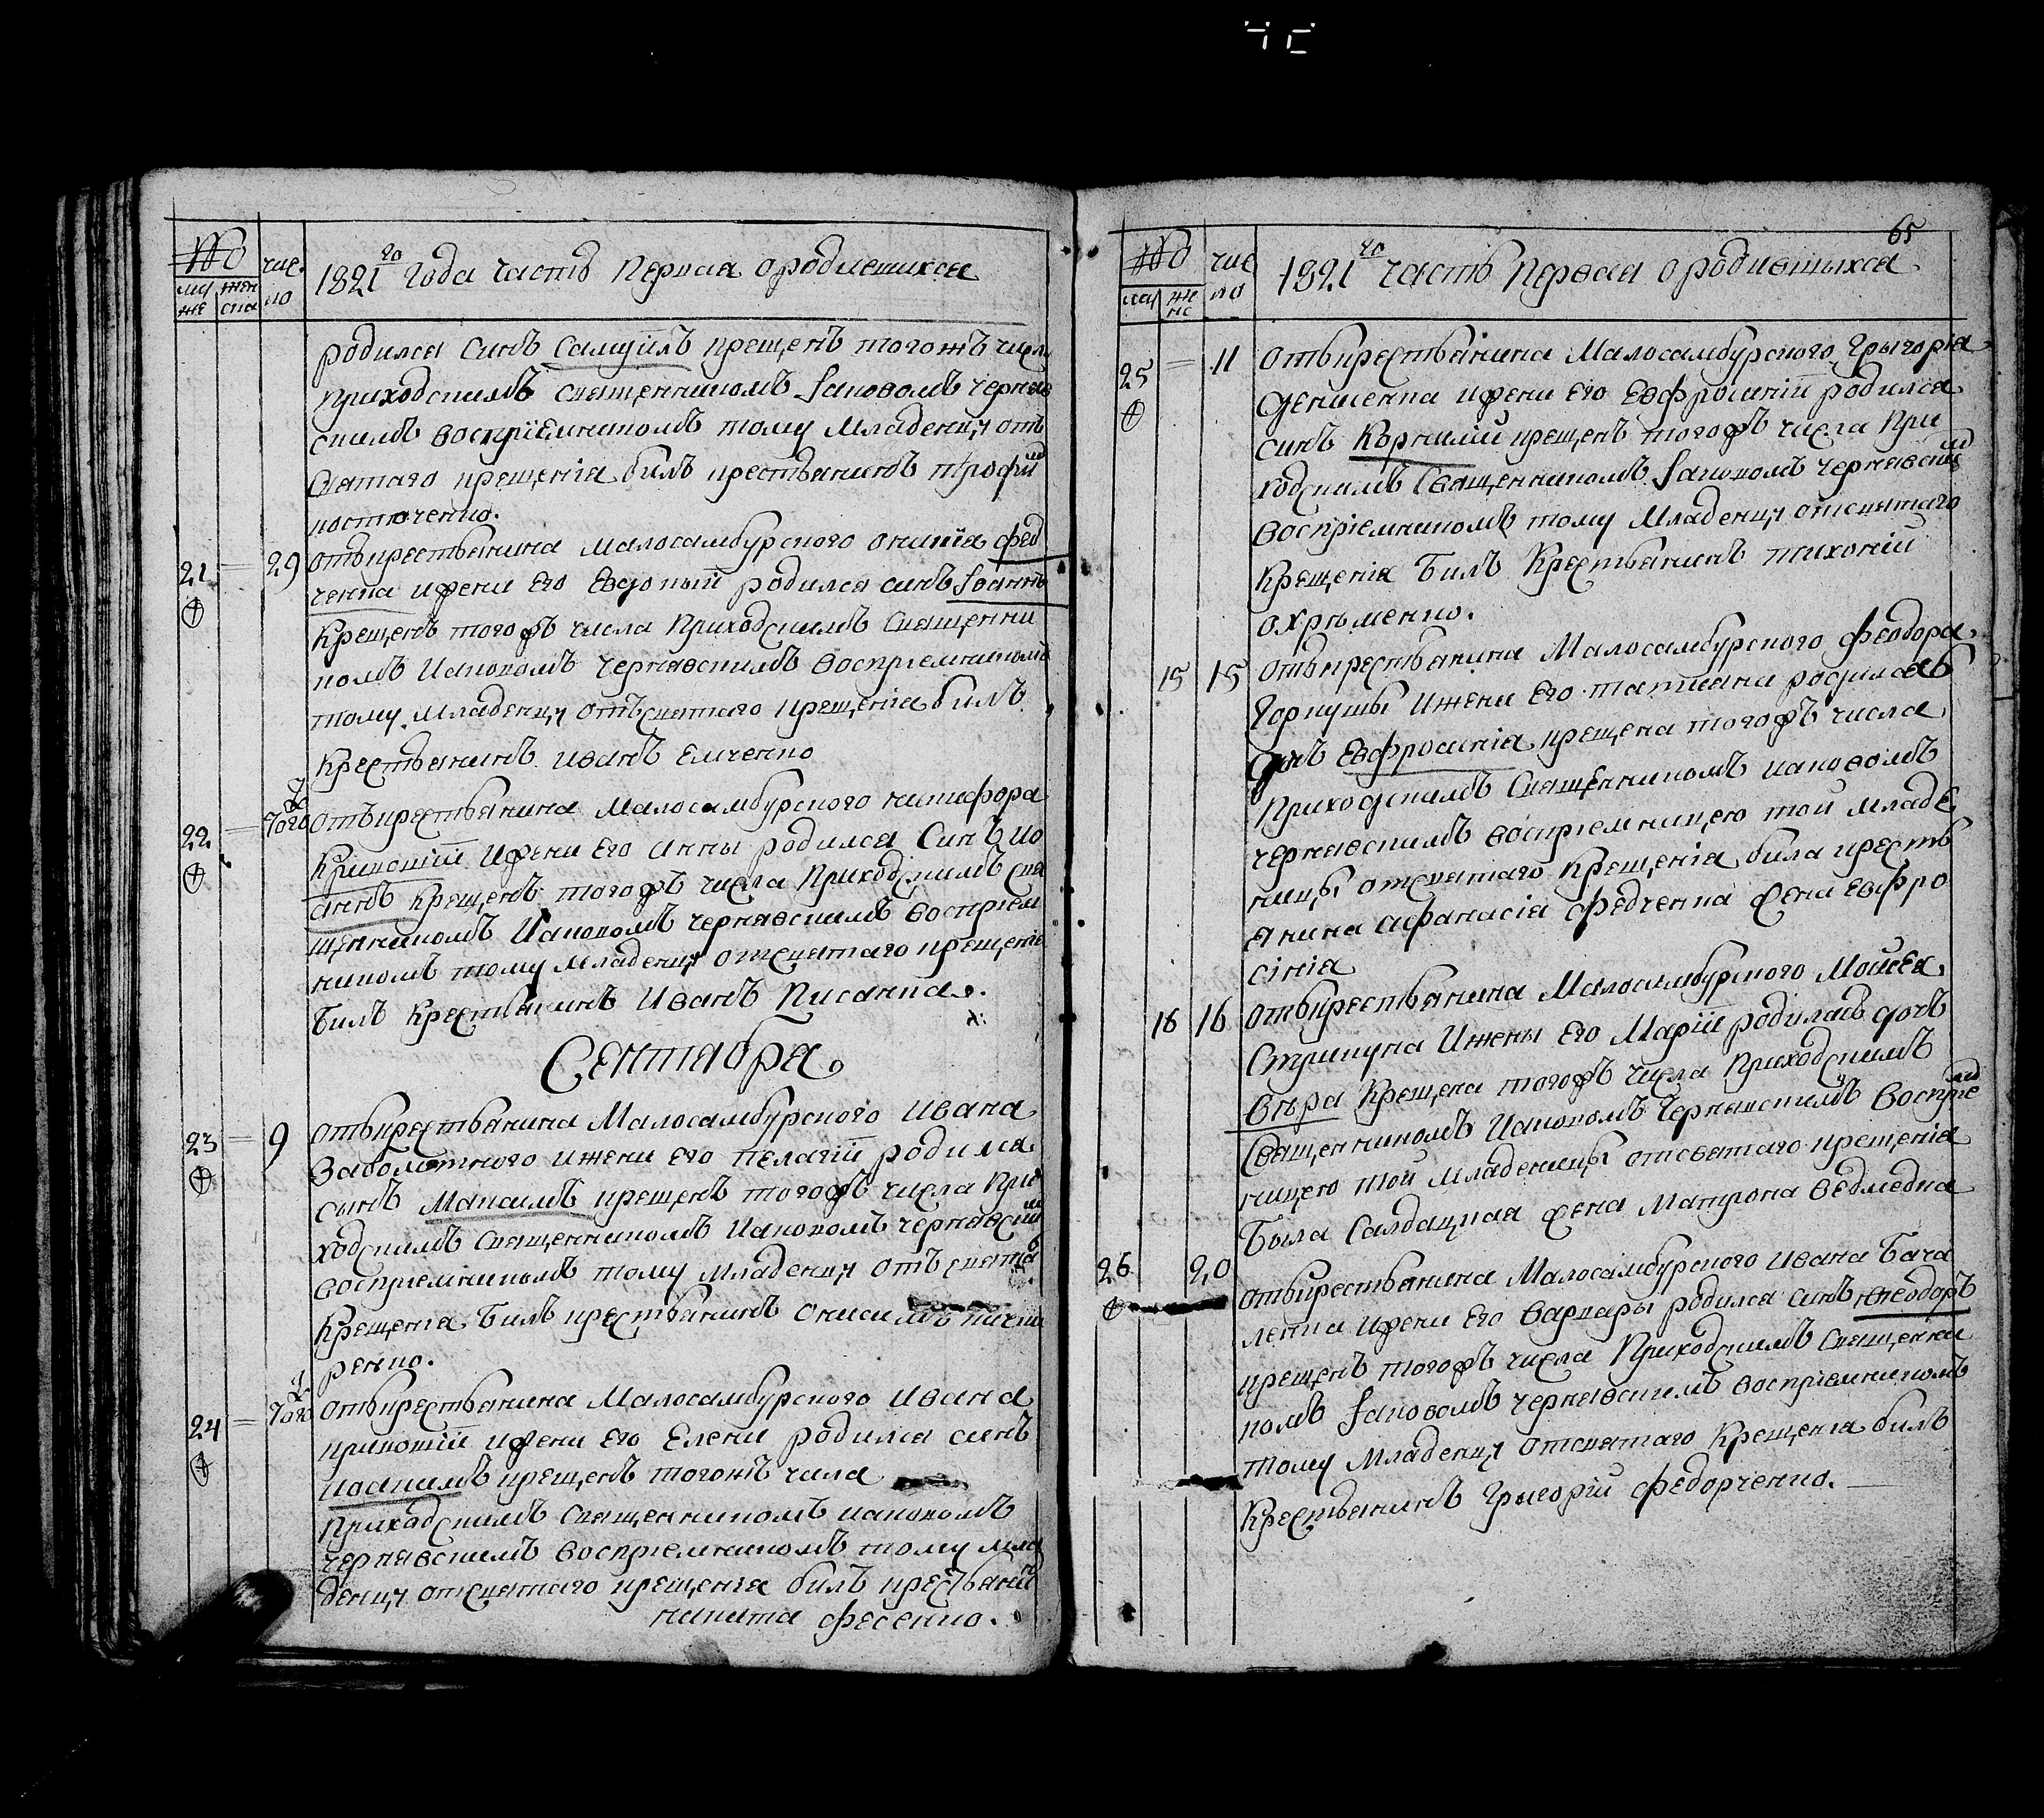 №№
муже
женска
число
1821го года часть первая о родившихся
родился синъ Самуилъ крещенъ тогожъ числа
приходскимъ священникомъ Іаковомъ Черняв
скимъ воспріемникомъ тому младенцу отъ
святаго крещенія билъ крестьянинъ Трофим
Костюченко.
21 = 29 отъ крестьянина малосамбурского Онисія Фед
ченка и жени его Евдокіи родился синъ Іоаннъ
крещенъ тогожъ числа приходскимъ священни
комъ Иаковомъ Чернявскимъ воспріемникомъ
тому младенцу отъ святаго крещенія билъ
крестьянинъ Иванъ Емченко
22 = Того отъ крестьянина малосамбурского Никифора
Кривошіи и жени его Анны родился синъ Ио
аннъ крещенъ тогожъ числа приходскимъ свя
щенникомъ Иаковомъ Чернявскимъ воспріем
никомъ тому младенцу от святаго крещенія
билъ крестьянинъ Иванъ Писанка.
Сентября
23 = 9 отъ крестьянина малосамбурского Ивана
Заболотного и жени его Пелагіи родился
сынъ Максимъ крещенъ тогожъ числа при
ходскимъ священникомъ Иаковомъ Чернявским
воспріемникомъ тому младенцу отъ свята
крещенія билъ крестьянинъ Онисимъ
ренко.
24 = Того отъ крестьянина малосамбурского Ивана
Кривошіи и жени его Елени родился синъ
Иоакимъ крещенъ тогожъ числа
приходскимъ священникомъ Иаковомъ
Чернявскимъ воспріемникомъ тому мла
денцу от святаго крещенія билъ крестьянин
Никита Фесенко.
65
№№
муж
женс
число
1821го часть первая о родившыхся
25 = 11 отъ крестьянина малосамбурского Грыгорія
Денисенка и жени его Евфросиніи родился
синъ Корнилій крещенъ тогожъ числа при
ходскимъ священникомъ Іаковомъ Чернявским
воспріемникомъ тому младенцу от святаго
крещенія билъ крестьянинъ Тихоній
Охрѣменко.
15 15 отъ крестьянина малосамбурского Феодора
Коркушы и жени его Татиани родилась
дочъ Евфросинія крещена тогожъ числа
приходскимъ священникомъ Иаковомъ
Чернявскимъ воспріемницею той младе
ницы от святаго крещенія била кресть
янина Афанасія Федченка жена Евфро
синія
16 16 отъ крестьянина малосамбурского Мойсея
Стрикуна и жены его Маріи родилась дочъ
Вѣра крещена тогожъ числа приходскимъ
священникомъ Иаковомъ Чернявскимъ воспріем
ницею той младеницы от святаго крещенія
была салдацкая жена Матрона Ведмедка
26 20 отъ крестьянина малосамбурского Ивана Бача
ленка и жени его Варвары родился синъ Феодоръ
крещенъ тогожъ числа приходскимъ священни
комъ Іаковомъ Чернявскимъ воспріемникомъ
тому младенцу от святаго крещенія билъ
крестьянинъ Григорій Федорченко.